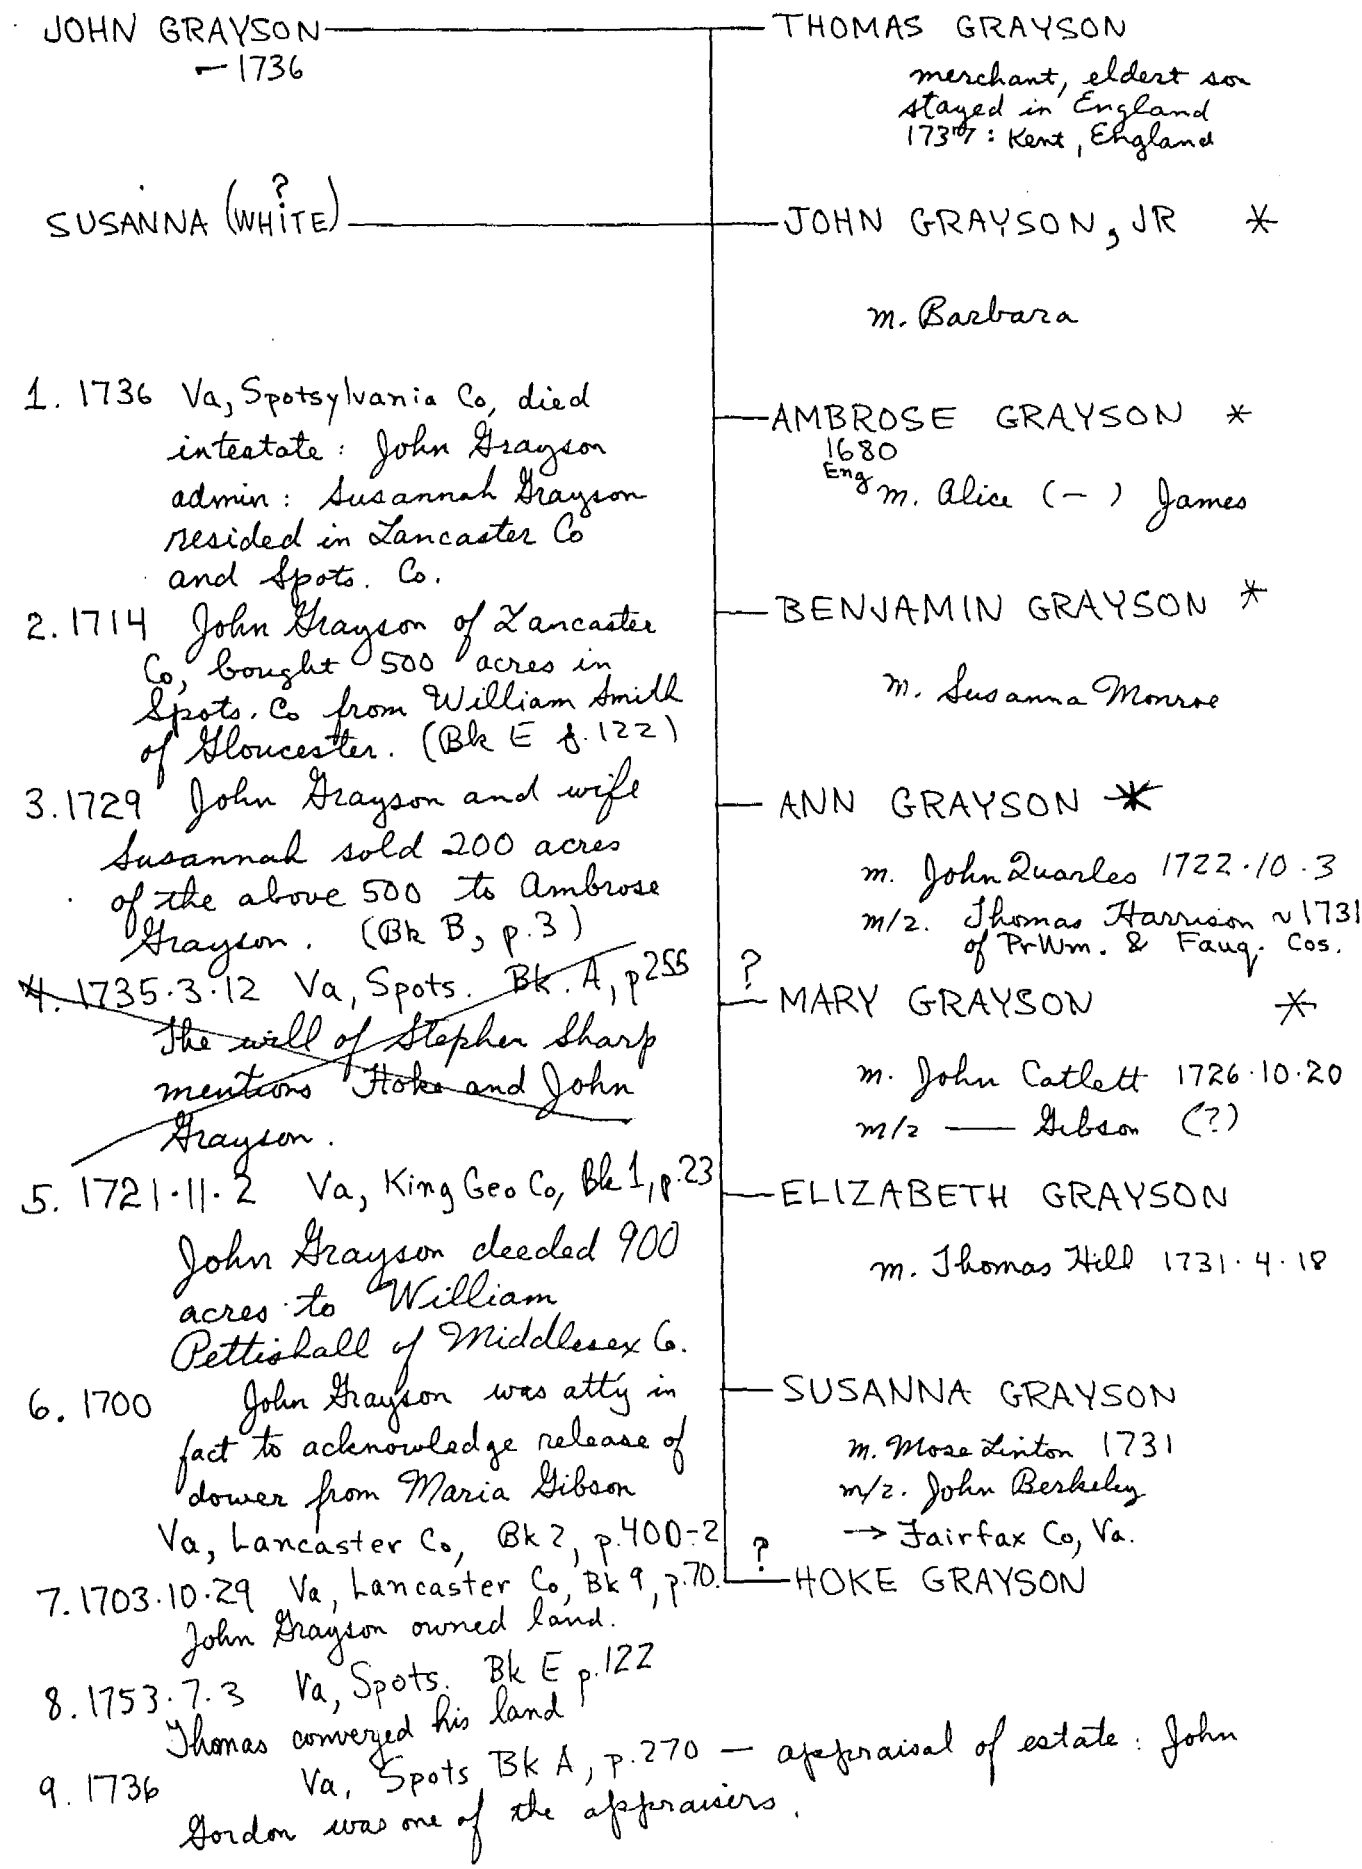 JOHN GRAYSON
– 1736
SUSANNA (WHITE)
?
1. 1736 Va, Spotsylvania Co, died
intestate : John Grayson
admin : Susannah Grayson
resided in Lancaster Co
and Spots. Co.
2. 1714 John Grayson of Lancaster
Co, bought 500 acres in
Spots. Co from William Smith
of Gloucester. (Bk E f. 122)
3. 1729 John Grayson and wife
Susannah sold 200 acres
of the above 500 to Ambrose
Grayson. (Bk B, p. 3)
4. 1735·3·12 Va, Spots. Bk. A, p255
The will of Stephen Sharp
mentions Hoke and John
Grayson.
5. 1721·11·2 Va, King Geo Co, Bk 1, p. 23
John Grayson deeded 900
acres to William
Pettishall of Middlesex Co.
6. 1700 John Grayson was atty in
fact to acknowledge release of
dower from Maria Gibson
Va, Lancaster Co, Bk 2, p. 400-2
7. 1703·10·29 Va, Lancaster Co, Bk 9, p. 70.
John Grayson owned land.
8. 1753·7·3 Va, Spots. Bk E p. 122
Thomas converyed his land
9. 1736 Va, Spots Bk A, p. 270 — appraisal of estate : John
Gordon was one of the appraisers.
THOMAS GRAYSON
merchant, eldest son
stayed in England
1737 : Kent, England
JOHN GRAYSON, JR *
m. Barbara
AMBROSE GRAYSON *
1680
Eng
m. Alice (–) James
BENJAMIN GRAYSON *
m. Susanna Monroe
ANN GRAYSON *
m. John Quarles 1722·10·3
m/2. Thomas Harrison ~1731
of PrWm. & Fauq. Cos.
?
MARY GRAYSON *
m. John Catlett 1726·10·20
m/2 — Gibson (?)
ELIZABETH GRAYSON
m. Thomas Hill 1731·4·18
SUSANNA GRAYSON
m. Mose Linton 1731
m/2. John Berkeley
→ Fairfax Co, Va.
?
HOKE GRAYSON